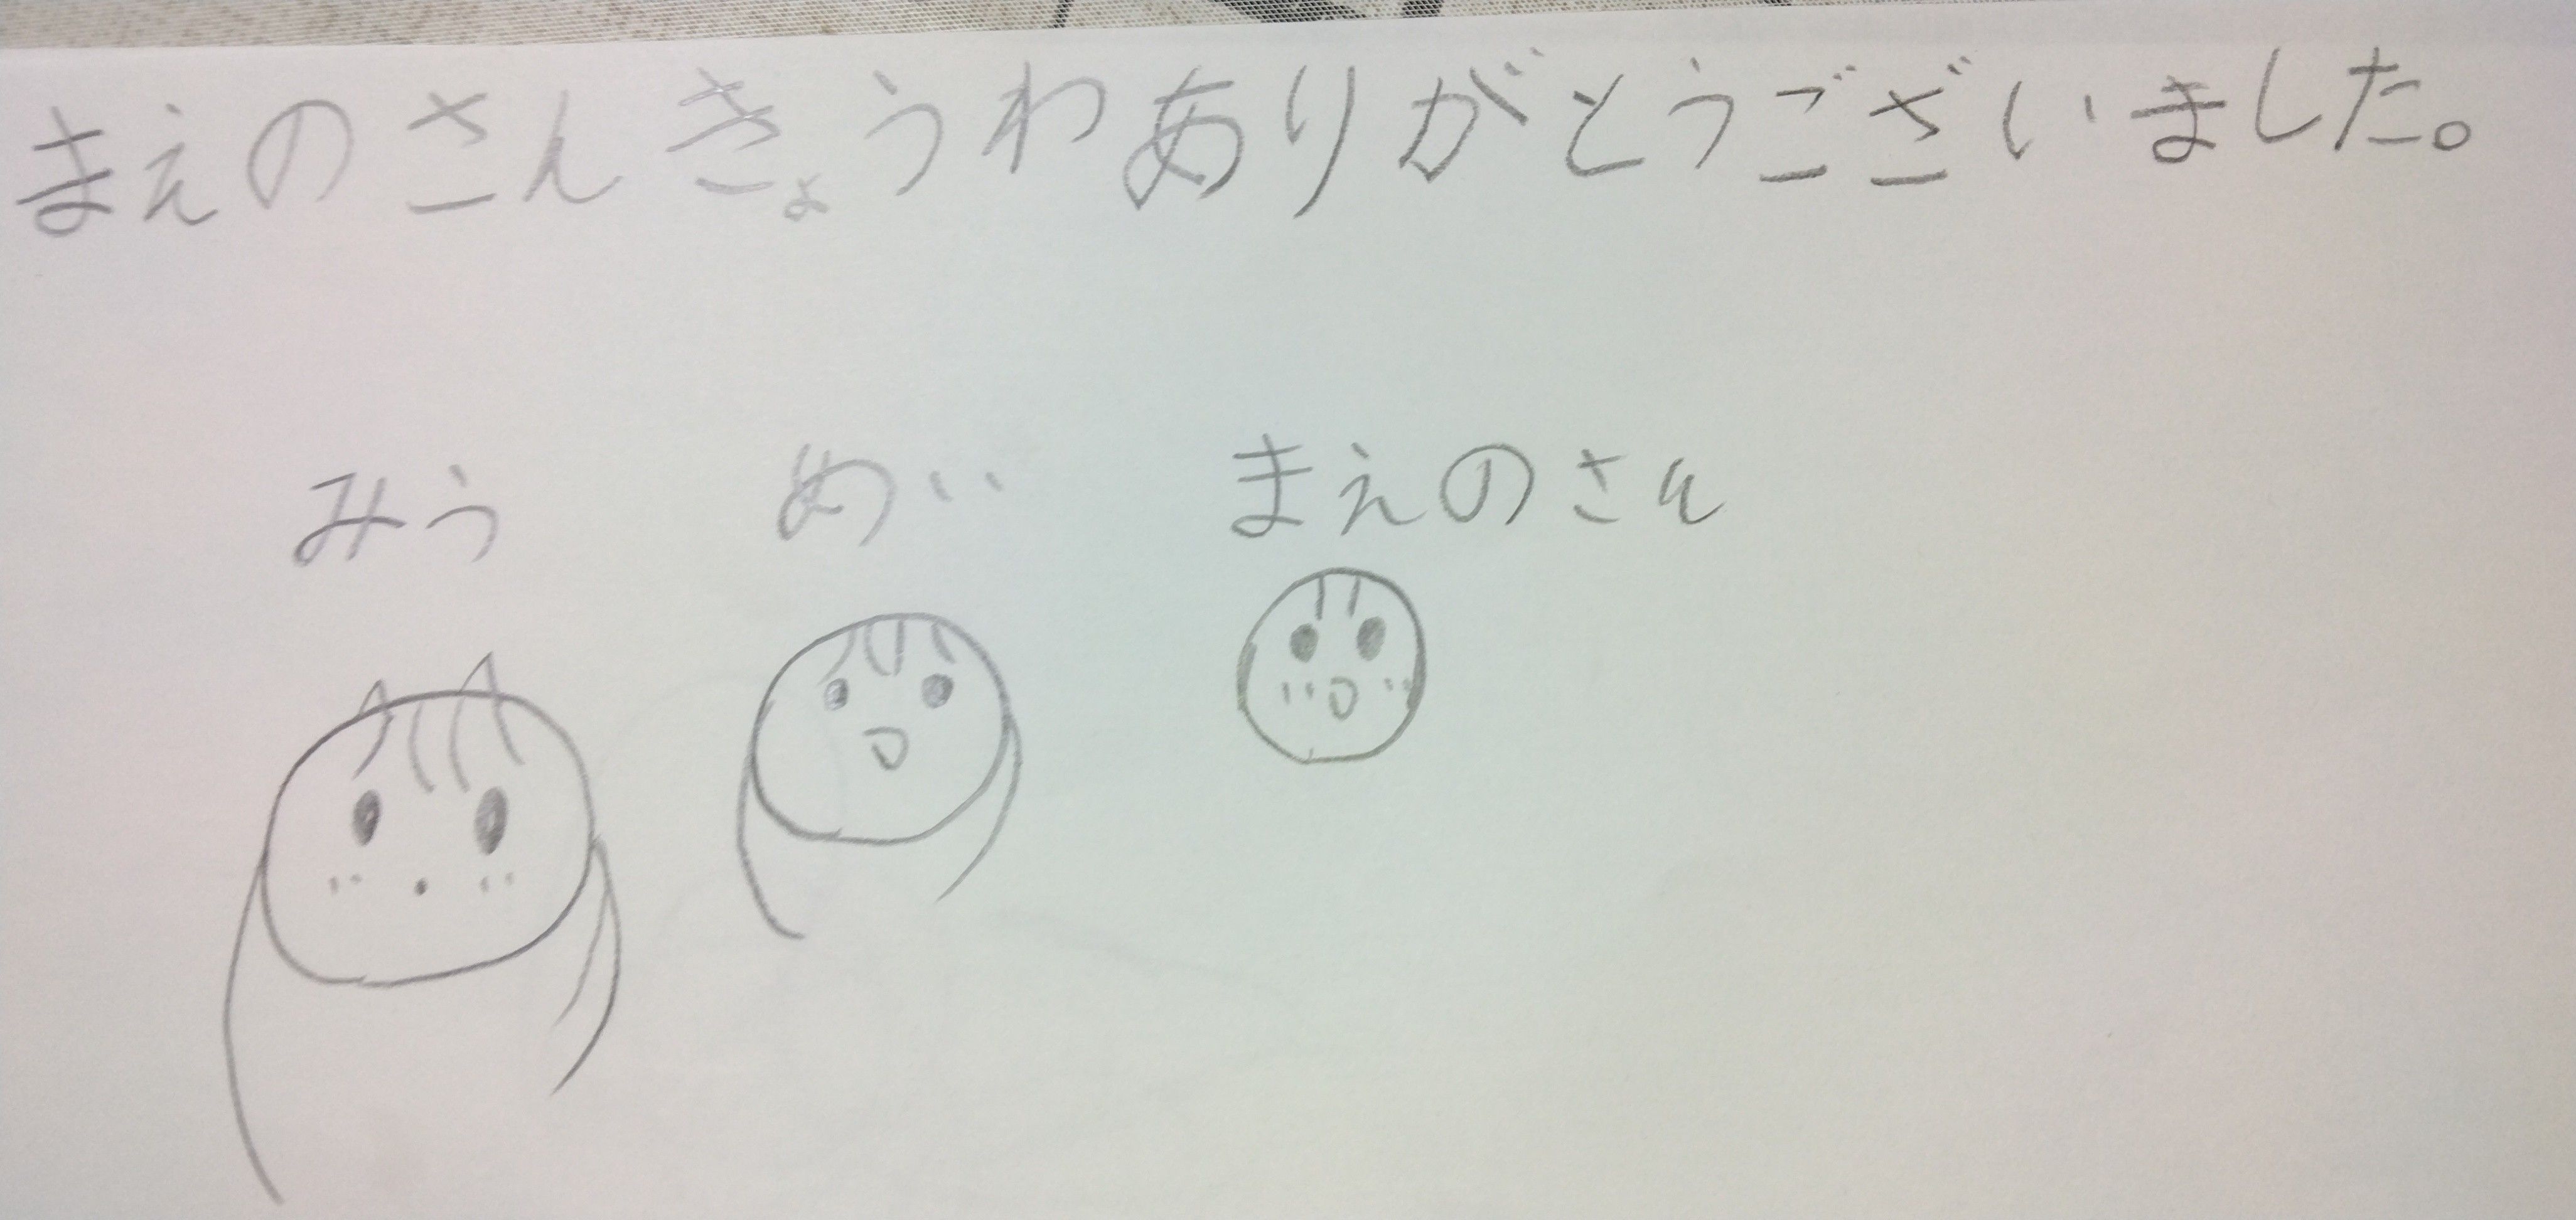 まえのさんきょうわありがとうございました。
みう めい まえのさん